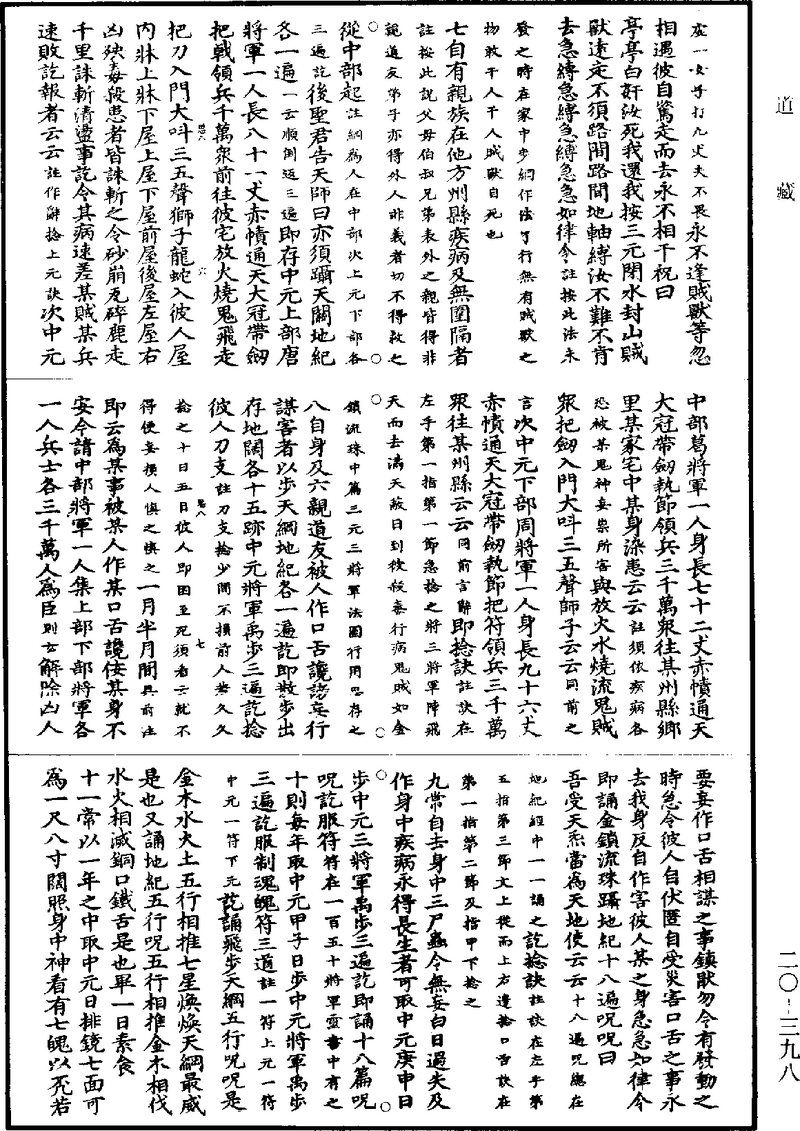 道藏
左一女子打九丈夫不畏永不逢賊獸等忽
相遇彼自驚走而去永不相干祝曰
亭亭白奸汝死我還我按三元閉水封山賊
獸遠定不須路間路間地軸縛汝不難不肯
去急縛急縛急縛急急如律令註按此法未
發之時在家中步綱作法了行無有賊獸之
物敢干人干人賊獸自死也
七自有親族在他方州縣疾病及無圍隔者
註按此說父母伯叔兄弟表外之親皆得非
說道友弟子亦得外人非義者切不得救之
從中部起註綱為人在中部次上元下部各
三遍訖後聖君告天師曰亦須躡天關地紀
各一遍一云順倒返三遍即存中元上部唐
將軍一人長八十一丈赤幘通天大冠帶劒
把戟領兵千萬衆前往彼宅放火燒鬼飛走
把刀入門大叫三五聲獅子龍蛇入彼人屋
內牀上牀下屋上屋下屋前屋後屋左屋右
凶殃毒段患者皆誅斬之令砂崩瓦碎鹿走
千里誅斬清盪事訖令其病速差某賊某兵
速敗訖報者云云註作解捻上元訣次中元
中部葛將軍一人身長七十二丈赤幘通天
大冠帶劒執節領兵三千萬衆往某州縣鄉
里某家宅中某身染患云云註須依疾病各
恐被某鬼神妄祟所害與放火水燒流鬼賊
衆把劒入門大叫三五聲師子云云同前之
言次中元下部周將軍一人身長九十六丈
赤幘通天大冠帶劒執節把符領兵三千萬
衆往某州縣云云同前言辭即捻訣註訣在
左手第一指第一節急捻之將三將軍陣飛
天而去滿天蔽日到彼殺毒行病鬼賊如金
鎖流珠中篇三元三將軍法圖行用思存之
八自身及六親道友被人作口舌讒謗妄行
謀害者以步天綱地紀各一遍訖即散步出
存地闊各十五跡中元將軍禹步三遍訖捻
彼人刀支註刀支捻少間不損前人若久久
捻之十日五日彼人即困至死須看云就不
得便妄損人慎之慎之一月半月間具前註
即云為某事被某人作某口舌讒佞某身不
安今請中部將軍一人集上部下部將軍各
一人兵士各三千萬人為臣則云解除凶人
要妄作口舌相謀之事鎮獸勿令有發動之
時急令彼人自伏匿自受災害口舌之事永
去我身反自作害彼人某之身急急如律令
即誦金鎖流珠躡地紀十八遍呪呪曰
吾受天炁當為天地使云云十八遍呪總在
地紀經中一一誦之訖捻訣註訣在左手第
五指第三節文上從而上右邊捻口舌訣在
第一指第二節及指甲下捻之
九常自去身中三尸蟲令無妄白日過失及
作身中疾病永得長生者可取中元庚申日
步中元三將軍禹步三遍訖即誦十八篇呪
呪訖服符符在一百五十將軍靈書中有之
十則每年取中元甲子日步中元將軍禹步
三遍訖服制魂魄符三道註一符上元一符
中元一符下元訖誦飛步天綱五行呪呪是
金木水火土五行相推七星煥煥天綱最威
是也又誦地紀五行呪五行相推金木相伐
水火相滅銅口鐵舌是也畢一日素食
十一常以一年之中取中元日排鏡七面可
為一尺八寸闊照身中神看有七魄以死若
二〇－三九八